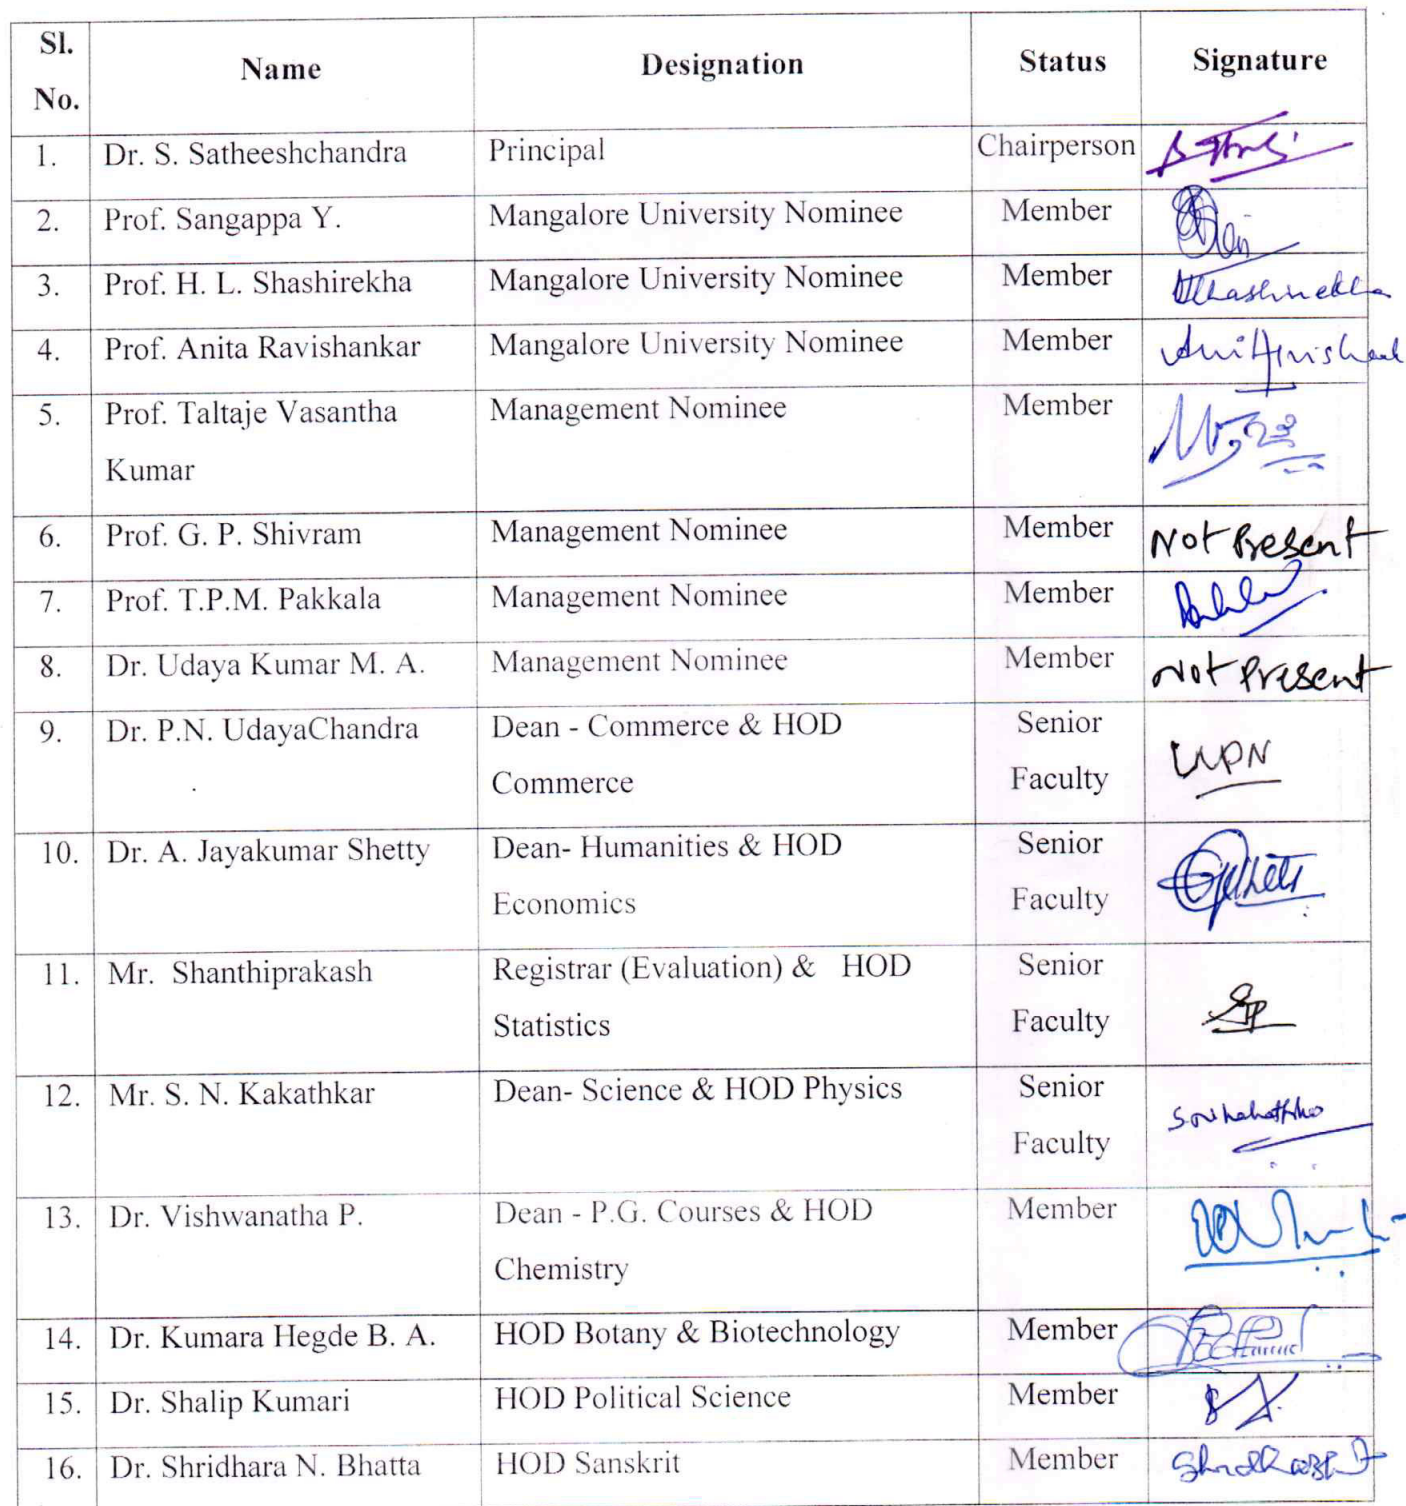 Sl. No. Name Designation Status Signature
1. Dr. S. Satheeshchandra Principal Chairperson
2. Prof. Sangappa Y. Mangalore University Nominee Member
3. Prof. H. L. Shashirekha Mangalore University Nominee Member
4. Prof. Anita Ravishankar Mangalore University Nominee Member
5. Prof. Taltaje Vasantha Management Nominee Member
Kumar
6. Prof. G. P. Shivram Management Nominee Member Not Present
7. Prof. T.P.M. Pakkala Management Nominee Member
8. Dr. Udaya Kumar M. A. Management Nominee Member Not Present
9. Dr. P.N. UdayaChandra Dean - Commerce & HOD Senior
Commerce Faculty UPN
10. Dr. A. Jayakumar Shetty Dean- Humanities & HOD Senior
Economics Faculty
11. Mr. Shanthiprakash Registrar (Evaluation) & HOD Senior
Statistics Faculty
12. Mr. S. N. Kakathkar Dean- Science & HOD Physics Senior
Faculty
13. Dr. Vishwanatha P. Dean - P.G. Courses & HOD Member
Chemistry
14. Dr. Kumara Hegde B. A. HOD Botany & Biotechnology Member
15. Dr. Shalip Kumari HOD Political Science Member
16. Dr. Shridhara N. Bhatta HOD Sanskrit Member